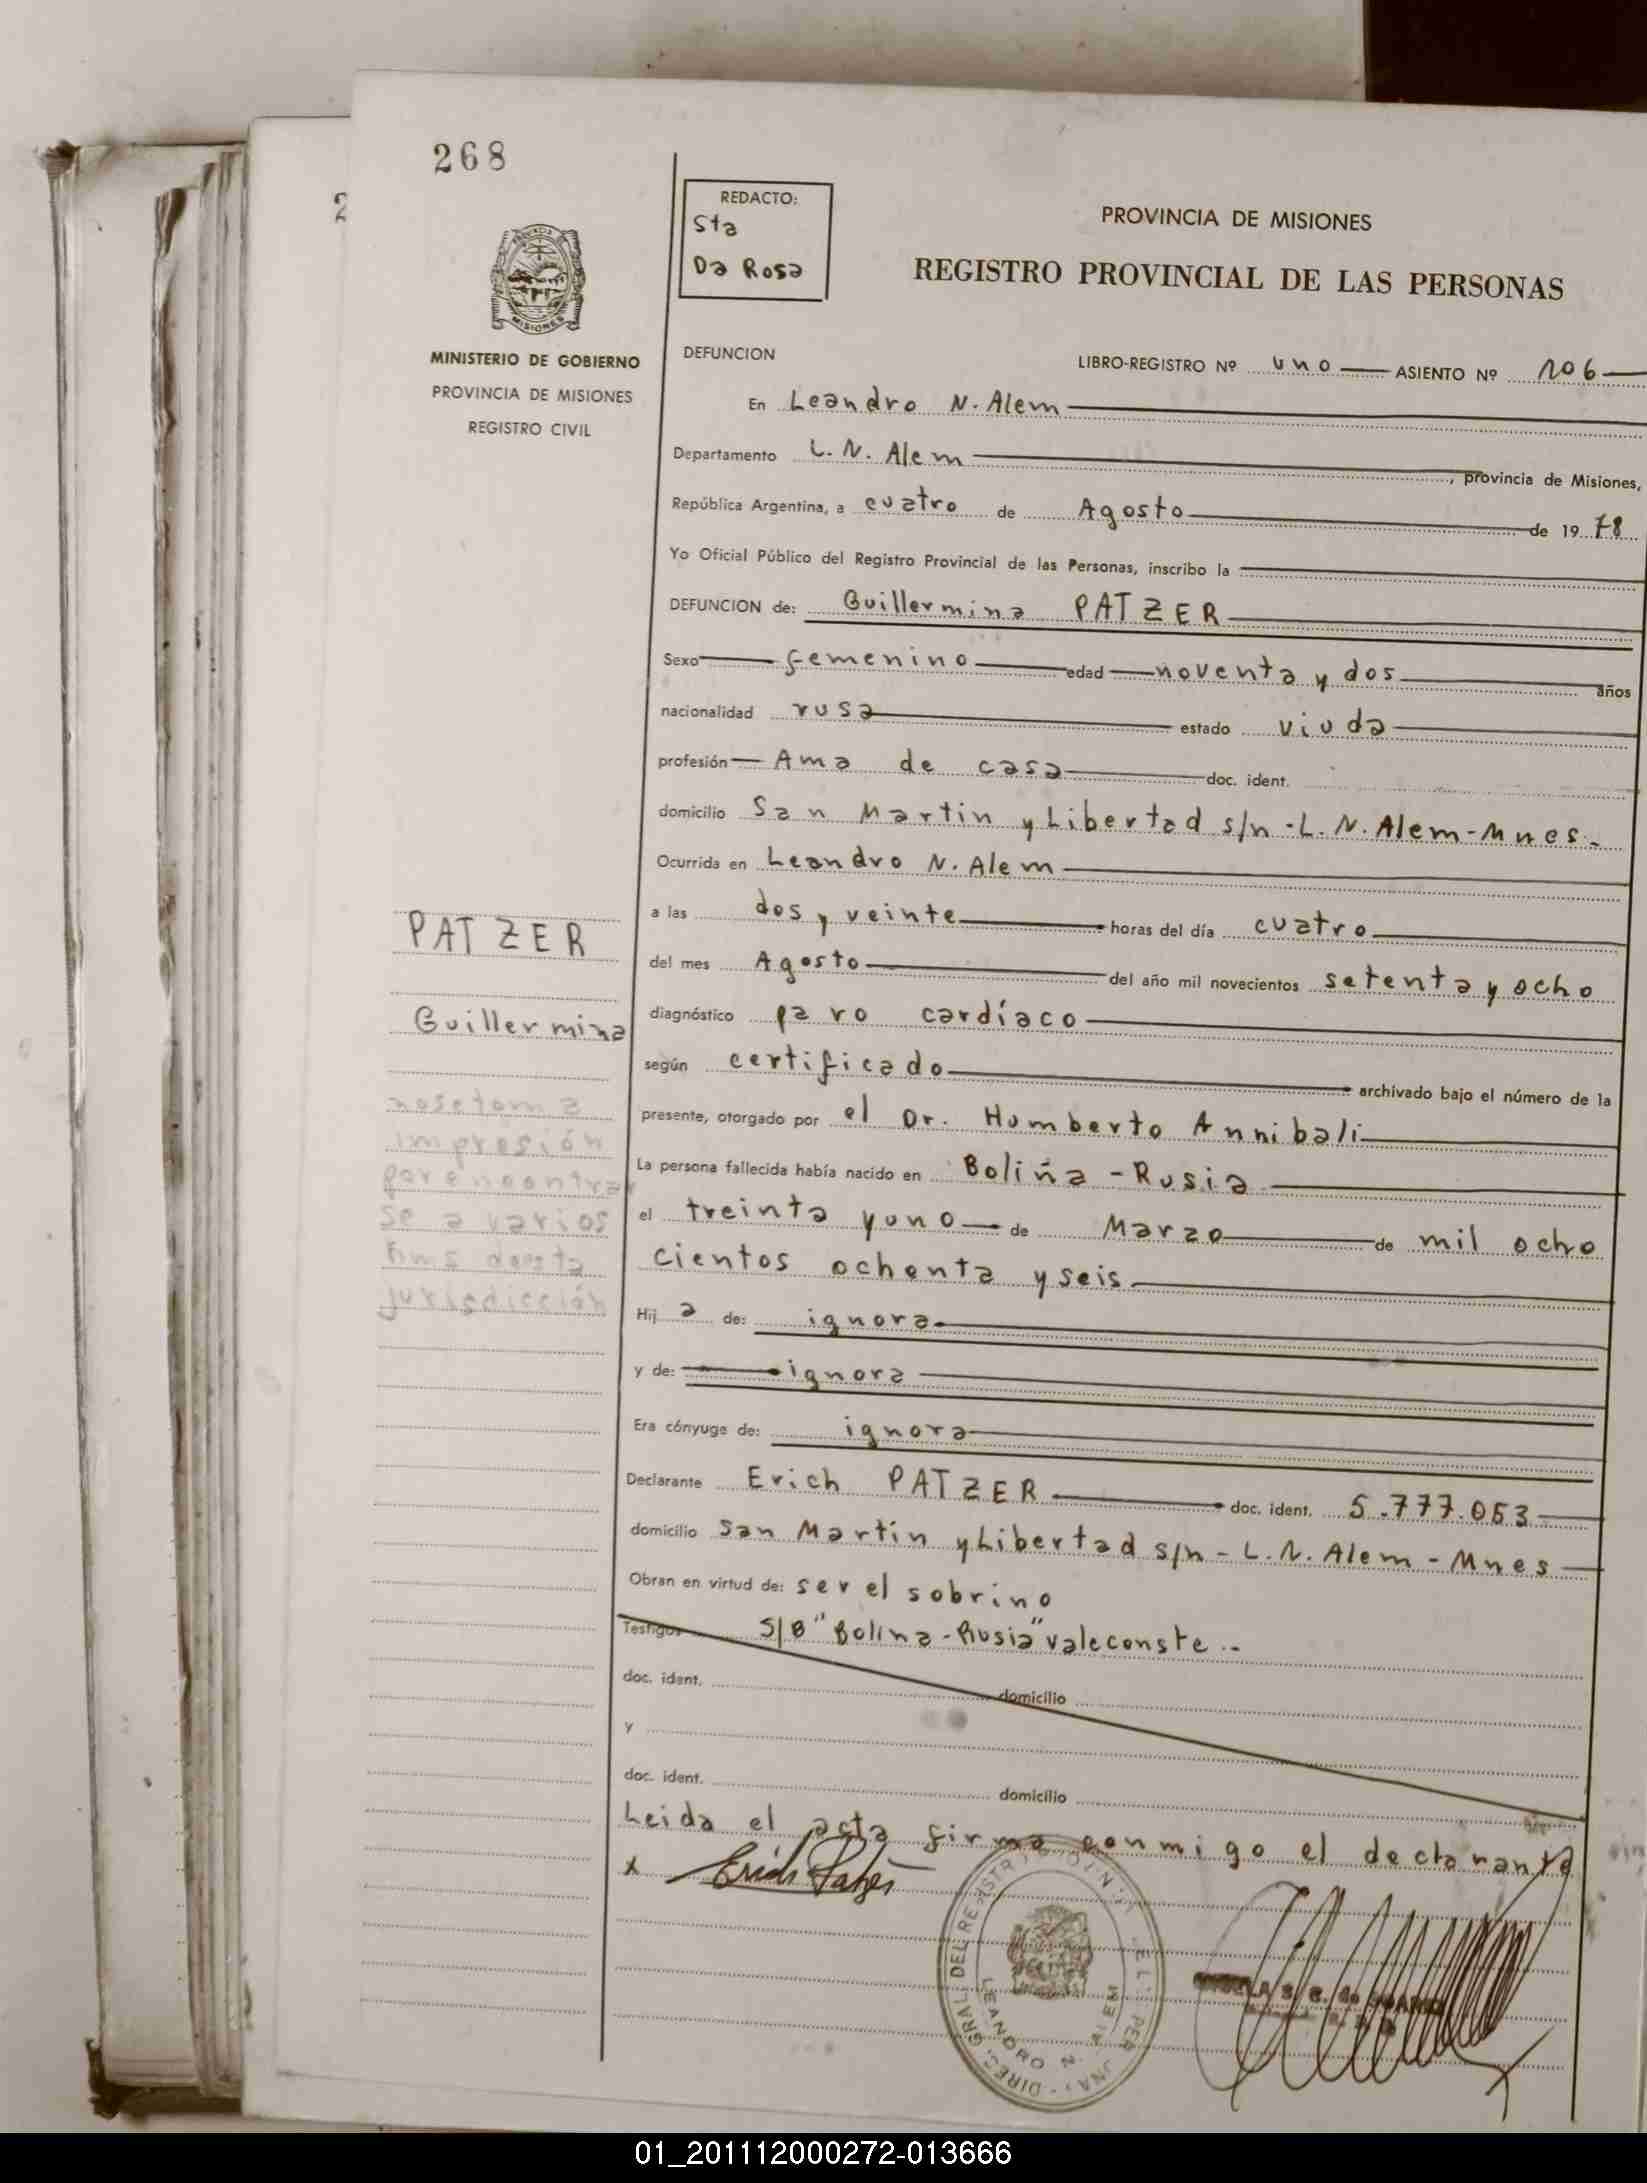 268
REDACTO:
Sta
Da Rosa
PROVINCIA DE MISIONES
REGISTRO PROVINCIAL DE LAS PERSONAS
PROVINCIA
MISIONES
MINISTERIO DE GOBIERNO
PROVINCIA DE MISIONES
REGISTRO CIVIL
DEFUNCION
LIBRO-REGISTRO Nº uno ASIENTO Nº 106
En Leandro N. Alem
Departamento L. N. Alem, provincia de Misiones,
República Argentina, a cuatro de Agosto de 1978
Yo Oficial Público del Registro Provincial de las Personas, inscribo la
DEFUNCION de: Guillermina PATZER
Sexo femenino edad noventa y dos años
nacionalidad rusa estado viuda
profesión Ama de casa doc. ident.
domicilio San Martin y Libertad s/n - L. N. Alem - Mnes.
Ocurrida en Leandro N. Alem
a las dos y veinte horas del día cuatro
del mes Agosto del año mil novecientos setenta y ocho
diagnóstico paro cardíaco
según certificado archivado bajo el número de la
presente, otorgado por el Dr. Humberto Annibali
La persona fallecida había nacido en Boliña - Rusia
el treinta y uno de Marzo de mil ocho
cientos ochenta y seis
Hija de: ignora
y de: ignora
Era cónyuge de: ignora
Declarante Erich PATZER doc. ident. 5.777.053
domicilio San Martín y Libertad s/n - L. N. Alem - Mnes
Obran en virtud de: ser el sobrino
Testigos S/B "Bolina - Rusia" vale conste.-
doc. ident. domicilio
y
doc. ident. domicilio
Leida el acta firma conmigo el declarante
x Erich Patzer
PATZER
Guillermina
no se toma
impresión
por encontrar
se a varios
kms de esta
jurisdicción
LEANDRO N. ALEM
01_201112000272-013666